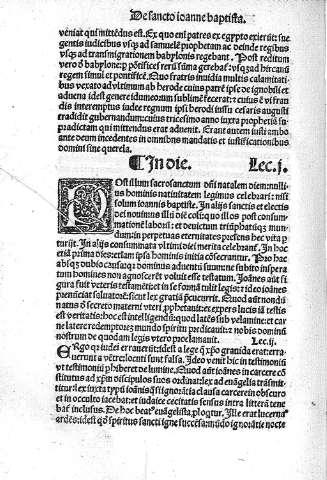 De sancto ioanne baptista.
veniat qui mittēdus est. Ex quo eni patres ex egypto exierūt: sue
gentis iudicibus vsq; ad samuelē prophetam ac deinde regibus
vsq; ad transmigrationem babylonis regebant. Post reditum
vero d babylone: p pōtifices rerū sūma gerebaf: vsq; ad hircanū
regem simul et pontificē. Quo fratris inuidia multis calamitati
bus vexato ad vltimum ab herode cuius patre ipse de ignobili et
aduena idest genere idumeorum sublimē fecerat: cuius ē vi frau
dis interemptus iudee regnum ipsi herodi iussu cesaris augusti
tradidit gubernandum: cuius tricesimo anno iuxta prophetiā su
pradictam qui mittendus erat aduenit. Erant autem iusti ambo
ante deum incedentes in omnibus mandatis et iustificationibus
domini sine querela.
¶ In die. Lec. j.
Post illum sacrosanctum dñi natalem diem: nulli
us hominis natiuitatem legimus celebrari: nisi
solum ioannis baptiste. In alijs sanctis et electis
dei nouimus illū diē coli: quo illos post consum
mationē laborū: et deuictum triūphatūq; mun
dum in perpetuas eternitates presens hec vita p
turijt. In alijs consummata vltimi diei merita celebrant. In hoc
etiā prima dies: et iam ipsa hominis initia cōsecrantur. Pro hac
absq; dubio causa: quia dominus aduentū suum ne subito inspera
tum homines non agnoscerēt voluit esse testatum. Ioānes aūt fi
gura fuit veteris testamēti: et in se formā tulit legis: z ideo ioānes
prenūciat saluatorē: sicut lex gratiā p̄cucurrit. Quod aūt nondū
natus d secreto materni vteri pphetauit: et expers lucis iā testis
est veritatis: hoc est intelligendū: quod latēs sub velamine: et car
ne latere redemptorez mundo spiritu predicauit: z nobis dominū
nostrum de quodam legis vtero proclamauit. Lec. ij.
Ergo qz iudei errauerūt: idest a lege q xpo grauida erat: erra
uerunt a vētre: locuti sunt falsa. Ideo venit hic in testimoniū
vt testimoniū phiberet de lumine. Quod aūt ioannes in carcere cō
stitutus ad xpm discipulos suos ordinat: lex ad euāgelia trāsmit
titur: lex iuxta typū ioānis qsi ignorātia clausa carcere in obscuro
et in occulto iacebat: et iudaice cecitatis sensus intra litterā tene
baf inclusus. De hoc beat' euāgelista ploqtur. Ille erat lucerna
ardēs: idest qd spiritus sancti igne succēsa: mūdo ignorātie nocte